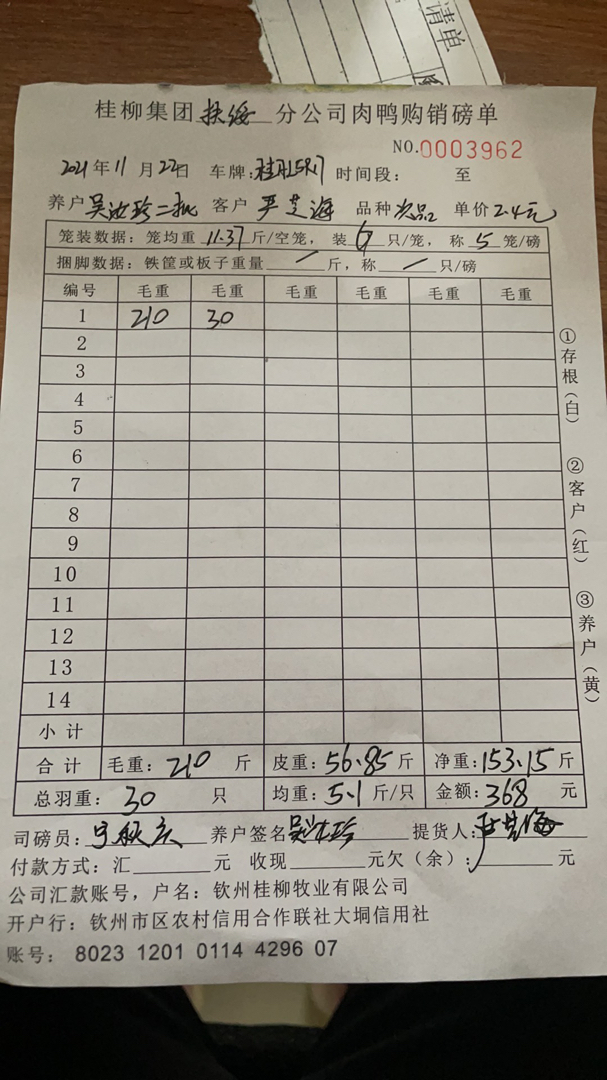 请单
桂柳集团扶绥分公司肉鸭购销磅单
NO.0003962
2021年11月22日 车牌: 时间段: 至
养户 吴汝珍二批 客户 严芝海 品种 次品 单价 2.4元
笼装数据: 笼均重 11.37 斤/空笼, 装 6 只/笼, 称 5 笼/磅
捆脚数据: 铁筐或板子重量 / 斤, 称 / 只/磅
编号 毛重 毛重 毛重 毛重 毛重 毛重
1 210 30
2
3
4
5
6
7
8
9
10
11
12
13
14
小计
合计 毛重: 210 斤 皮重: 56.85 斤 净重: 153.15 斤
总羽重: 30 只 均重: 5.1 斤/只 金额: 368 元
司磅员: 养户签名 吴汝珍 提货人: 严芝海
付款方式: 汇 元 收现 元欠(余): 元
公司汇款账号, 户名: 钦州桂柳牧业有限公司
开户行: 钦州市区农村信用合作联社大垌信用社
账号: 8023 1201 0114 4296 07
①存根(白)
②客户(红)
③养户(黄)